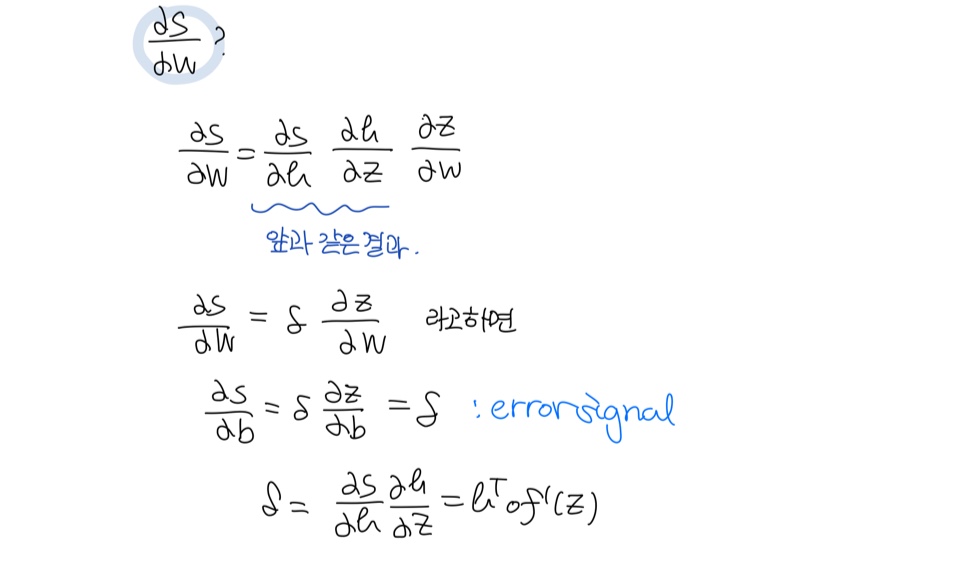 ∂S/∂W ?
∂S/∂W = ∂S/∂h ∂h/∂Z ∂Z/∂W
앞과 같은 결과.
∂S/∂W = δ ∂Z/∂W 라고하면
∂S/∂b = δ ∂Z/∂b = δ : error signal
δ = ∂S/∂h ∂h/∂Z = hᵀ∘f'(Z)